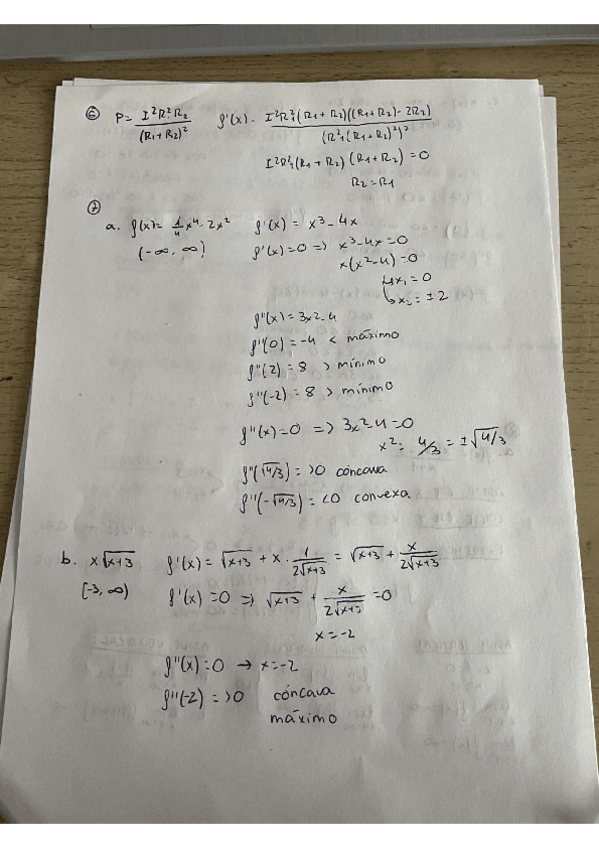 ⑥ P = I²R₁²R₂ / (R₁+R₂)²   f'(x) = I²R₁²(R₁+R₂)((R₁+R₂)-2R₂) / (R₁²(R₁+R₂)²)²
I²R₁²(R₁+R₂)(R₁+R₂) = 0
R₂ = R₁
⑦
a. f(x) = 1/4 x⁴ - 2x²   f'(x) = x³ - 4x
(-∞, ∞)   f'(x) = 0 => x³ - 4x = 0
x(x² - 4) = 0
↳ x₁ = 0
↳ x₂ = ± 2
f''(x) = 3x2 - 4
f''(0) = -4 < máximo
f''(2) = 8 > mínimo
f''(-2) = 8 > mínimo
f''(x) = 0 => 3x² - 4 = 0
x² = 4/3 = ±√4/3
f''(√4/3) = >0 cóncava
f'''(-√4/3) = <0 convexa
b. x√x+3   f'(x) = √x+3 + x · 1/2√x+3 = √x+3 + x/2√x+3
[-3, ∞)   f'(x) = 0 => √x+3 + x/2√x+3 = 0
x = -2
f''(x) = 0 → x = -2
f'''(-2) = >0 cóncava
máximo